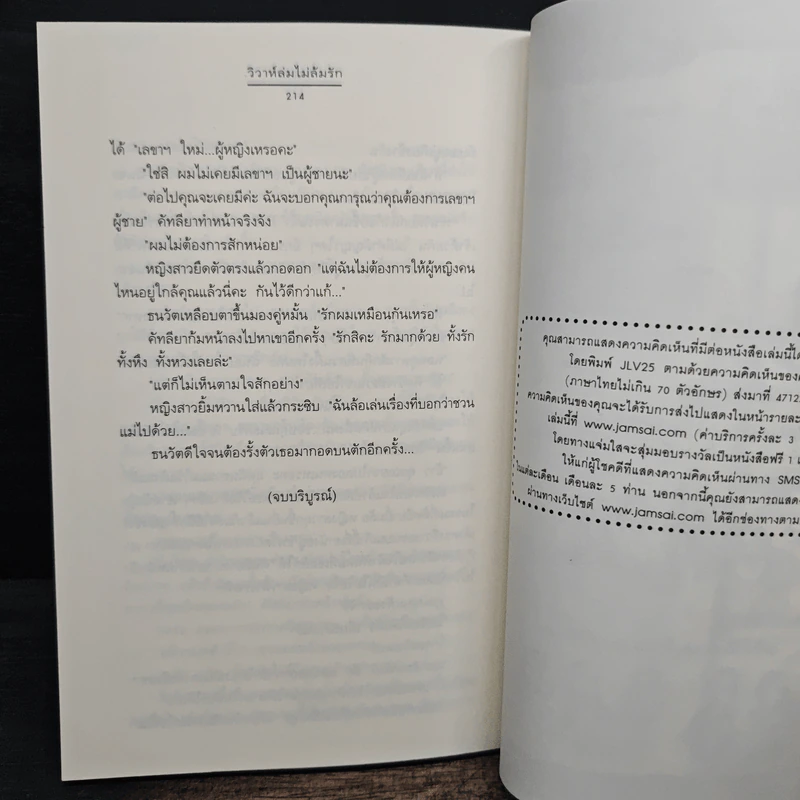 วิวาห์ล่มไม่ล้มรัก
214
ได้ "เลขาฯ ใหม่...ผู้หญิงเหรอคะ"
"ใช่สิ ผมไม่เคยมีเลขาฯ เป็นผู้ชายนะ"
"ต่อไปคุณจะเคยมีค่ะ ฉันจะบอกคุณการุณว่าคุณต้องการเลขาฯ
ผู้ชาย" คัทลียาทำหน้าจริงจัง
"ผมไม่ต้องการสักหน่อย"
หญิงสาวยืดตัวตรงแล้วกอดอก "แต่ฉันไม่ต้องการให้ผู้หญิงคน
ไหนอยู่ใกล้คุณแล้วนี่คะ กันไว้ดีกว่าแก้..."
ธนวัตเหลือบตาขึ้นมองคู่หมั้น "รักผมเหมือนกันเหรอ"
คัทลียาก้มหน้าลงไปหาเขาอีกครั้ง "รักสิคะ รักมากด้วย ทั้งรัก
ทั้งหึง ทั้งหวงเลยล่ะ"
"แต่ก็ไม่เห็นตามใจสักอย่าง"
หญิงสาวยิ้มหวานใส่แล้วกระซิบ "ฉันล้อเล่นเรื่องที่บอกว่าชวน
แม่ไปด้วย..."
ธนวัตดีใจจนต้องรั้งตัวเธอมากอดบนตักอีกครั้ง...
(จบบริบูรณ์)
คุณสามารถแสดงความคิดเห็นที่มีต่อหนังสือเล่มนี้ได้
โดยพิมพ์ JLV25 ตามด้วยความคิดเห็นของ
(ภาษาไทยไม่เกิน 70 ตัวอักษร) ส่งมาที่ 4712
ความคิดเห็นของคุณจะได้รับการส่งไปแสดงในหน้ารายละ
เล่มนี้ที่ www.jamsai.com (ค่าบริการครั้งละ 3
โดยทางแจ่มใสจะสุ่มมอบรางวัลเป็นหนังสือฟรี 1
ให้แก่ผู้โชคดีที่แสดงความคิดเห็นผ่านทาง SMS
ในแต่ละเดือน เดือนละ 5 ท่าน นอกจากนี้คุณยังสามารถแสดง
ผ่านทางเว็บไซต์ www.jamsai.com ได้อีกช่องทางตาม